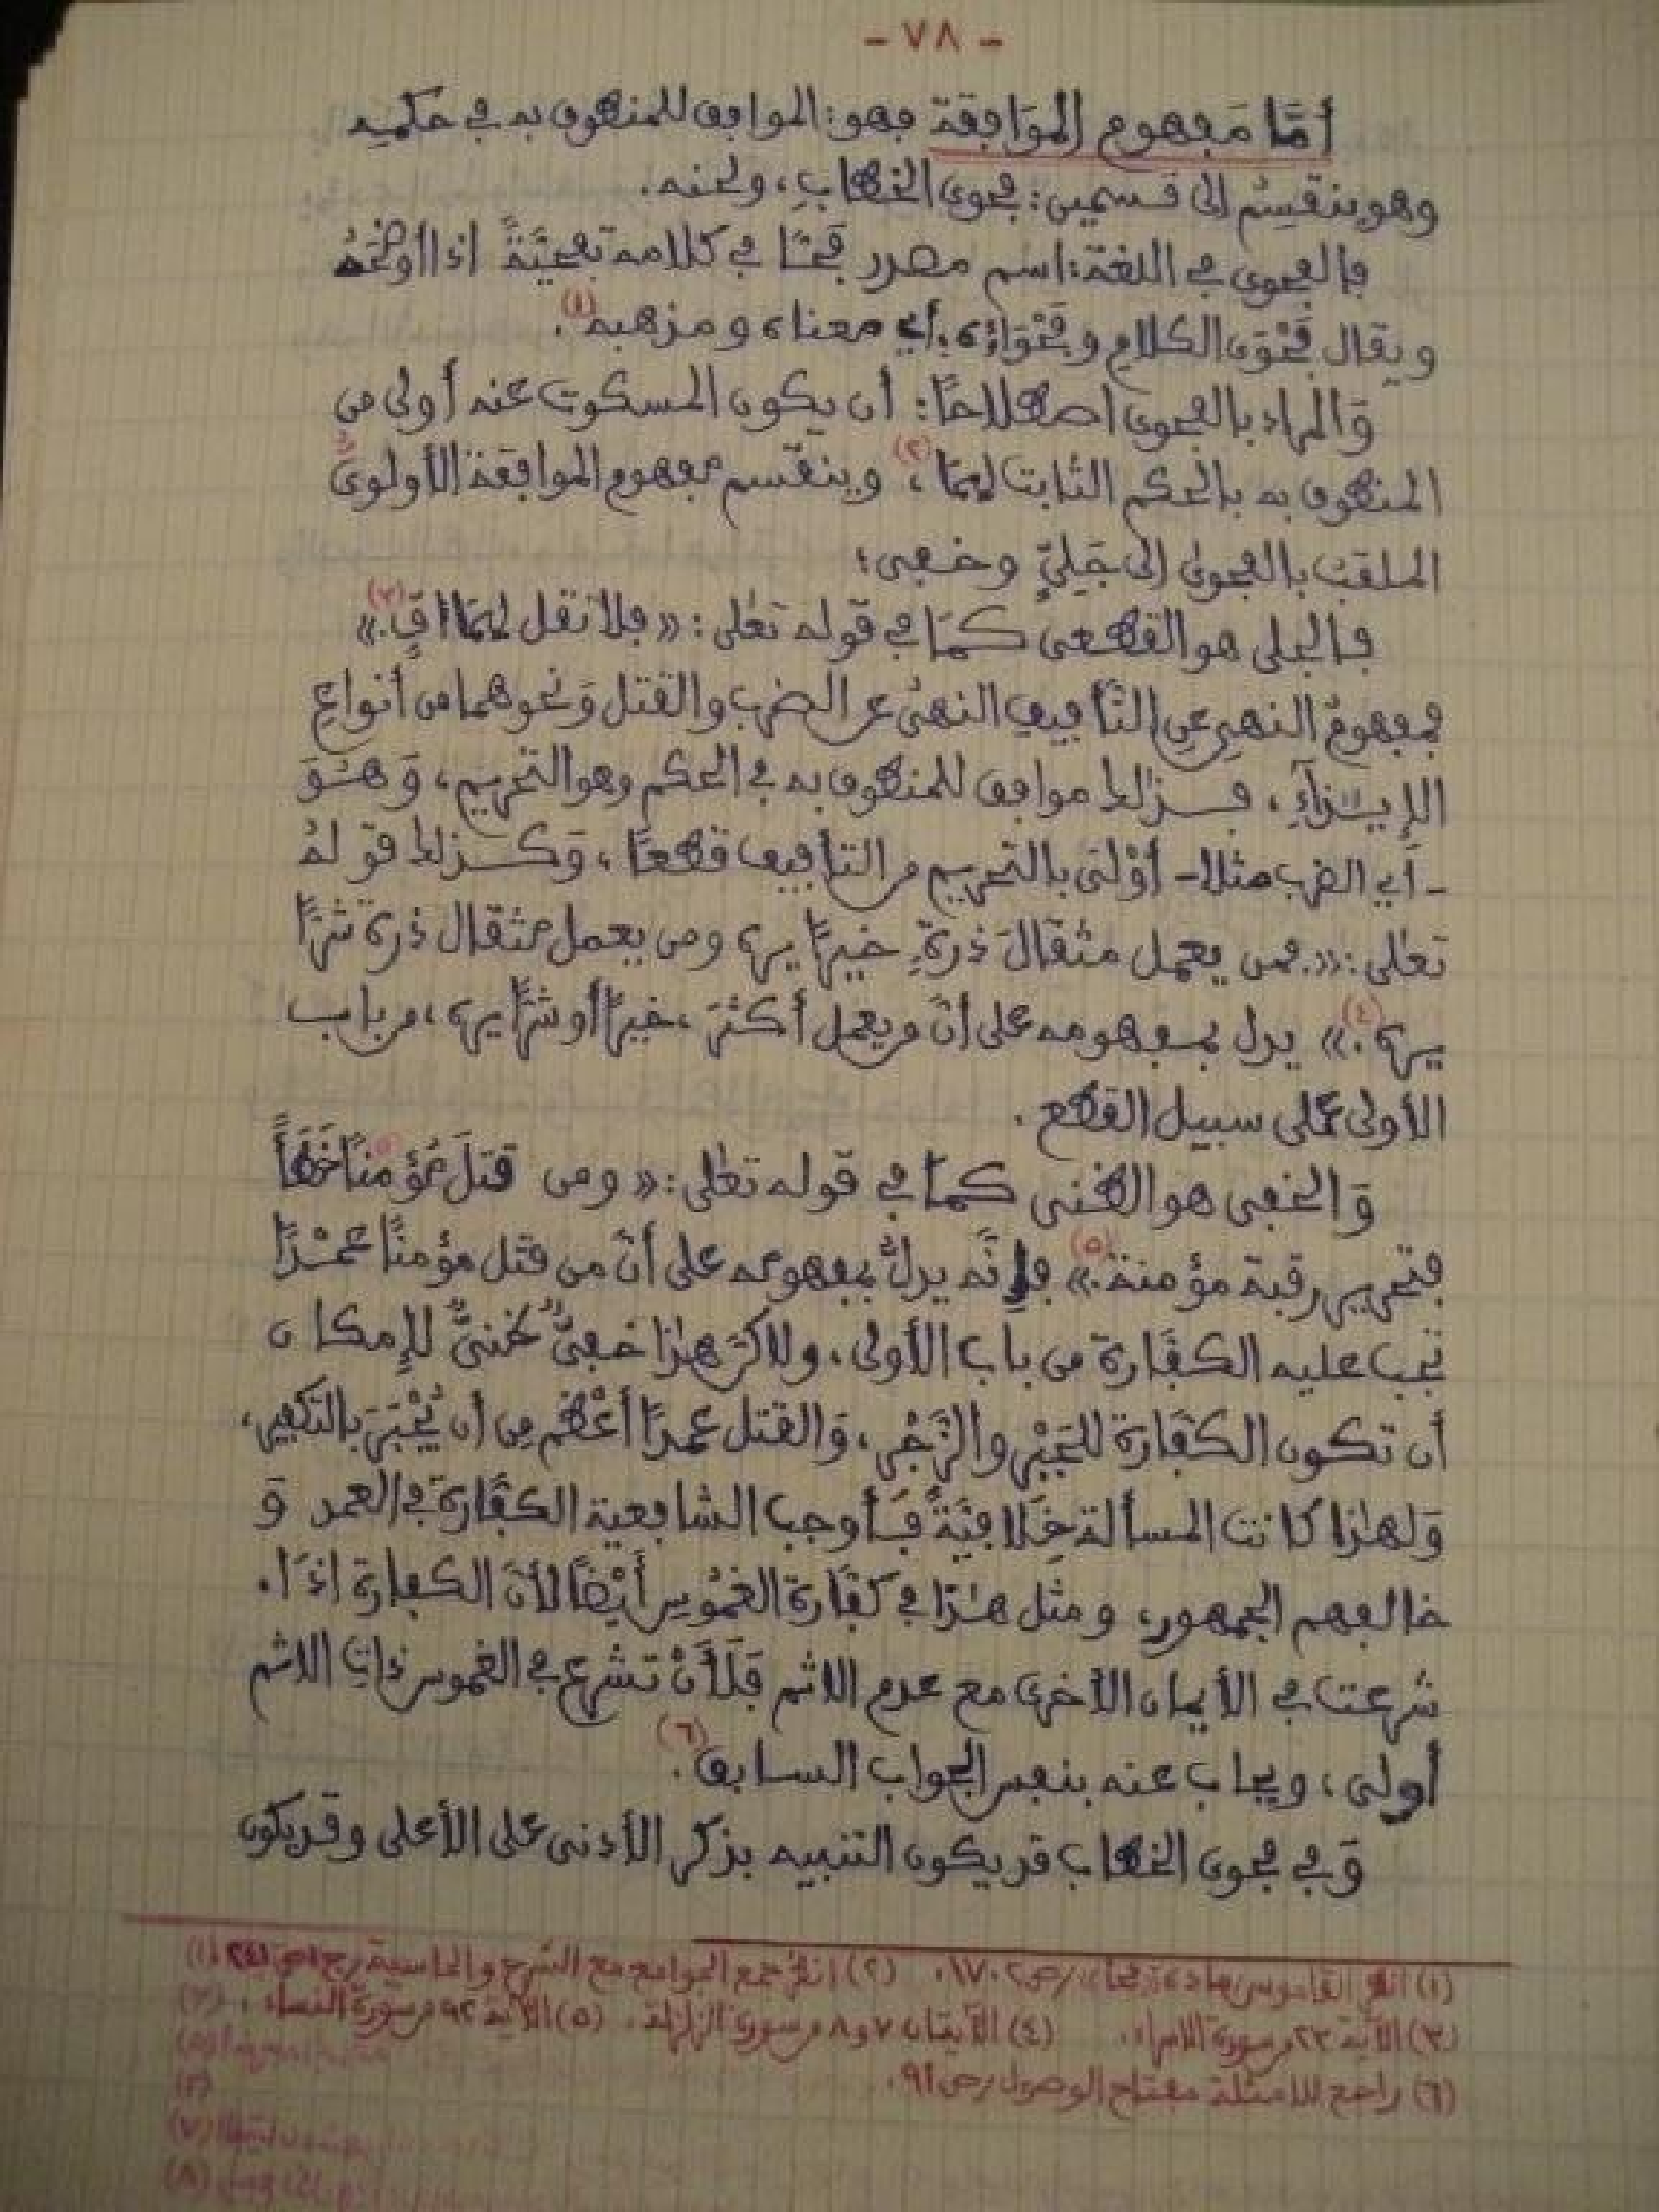 - ٧٨ -
أمَّا مَفهوم المُوَافقة فهو: الموافق للمنطوق به في حكمه
وهو ينقسِم إلى قسمين: فحوى الخطابِ، ولحنه.
فالفحوى في اللغة: اسم مصدر فَحَّا في كلامه تفحيَّةً اذا أوضَحَهُ
ويقال فَحْوَى الكلامِ وفَحْوَاؤُه، أي معناه ومذهبه (١).
وَالمراد بالفحوى اصطلاحًا: أن يكون المسكوت عنه أولى من
المنطوق به بالحكم الثابت لهمَا (٢)، وينقسم مفهوم الموافقة الأولوى
الملقب بالفحوى إلى جَلِيٍّ وخفى:
فالجلى هو القطعى كمَا في قوله تعٰلى: «فلا تقل لهمَا افٍّ (٣).»
فمفهومُ النهىِ عنِ التَّأفيفِ النهىُ عن الضرب والقتل وَنحوهما من أنواعِ
الإيذآءِ، فذٰلك موافق للمنطوق به في الحكم وهو التحريم، وَهُوَ
- أي الضرب مثلا - أوْلَى بالتحريم من التأفيف قطعًا، وَكذٰلك قوْلهُ
تعٰلى: «فمن يعمل مثقالَ ذرةٍ خيرًا يره ومن يعمل مثقال ذرة شرًّا
يره (٤).» يدل بمفهومه على أنَّ من يعمل أكثرَ، خيرًا أو شرًّا يره، من باب
الأولى عَلى سبيل القطع.
وَالخفى هو الظنى كمَا في قوله تعٰلى: «ومن قتلَ مُؤمنًا خَطَأً
فتحرير رقبة مؤمنة (٥).» فإنَّه يدلُّ بمفهومه على أنَّ من قتل مؤمنًا عمْدًا
تجب عليه الكفَّارة من باب الأولى، ولاكنَّ هٰذا خفىٌّ ظنىٌّ للإمكان
أن تكون الكفَّارة للجَبْرِ والزَّجْرِ، وَالقتل عمدًا أعْظم مِن أن يُجْبَرَ بالتكفير،
وَلهٰذا كانت المسألة خِلَافيَّةً فَأوجب الشافعية الكفَّارة في العمد وَ
خالفهم الجمهور، ومثل هٰذَا في كفَّارة الغمُوسِ أيْضًا لأنَّ الكفارة اذَا.
شرعت في الأيمان الأخرى مع عدم الاثم فَلَأَنْ تشرع في الغموس ذاتِ الاثم
أولى، ويجاب عنه بنفس الجواب السابق (٦).
وَفي فحوى الخطاب قد يكون التنبيه بذكر الأدنى على الأعلى وقد يكون
(١) انظر القاموس مادة: فحا، ص ١٧٠٢. (٢) انظر جمع الجوامع مع الشرح والحاشية، ج١ ص ٢٤١
(٣) الآية ٢٣ من سورة الاسراء. (٤) الآيتان ٧ و ٨ من سورة الزلزلة. (٥) الآية ٩٢ من سورة النساء.
(٦) راجع للامثلة مفتاح الوصول، ص ٩١.